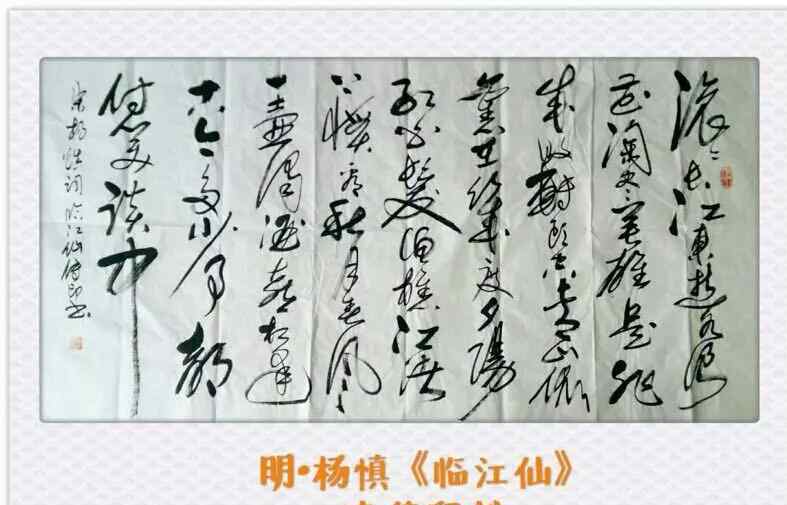 滚滚长江東逝水浪
花淘尽英雄是非
成败转头空青山依
舊在几度夕陽
红白髮渔樵江渚
上惯看秋月春風
一壶浊酒喜相逢
古今多少事都
付笑谈中
杨慎词临江仙
明•杨慎《临江仙》